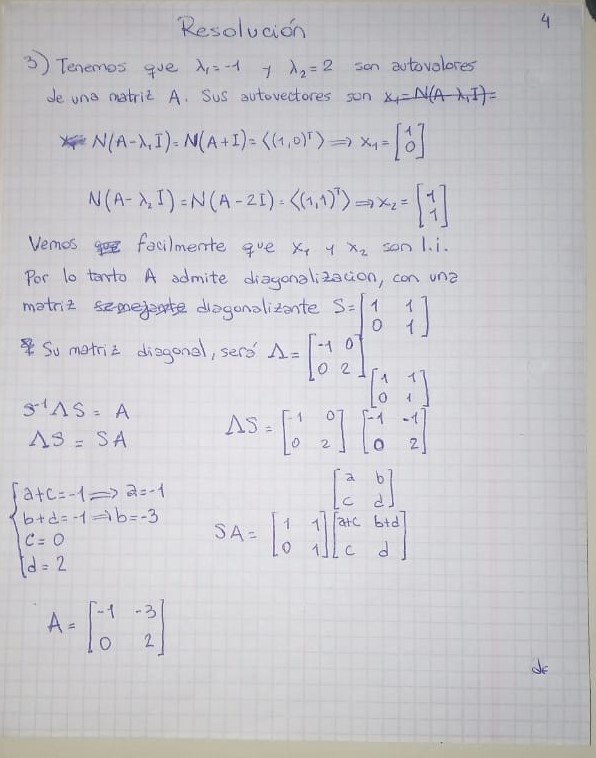 Resolución
4
3) Tenemos que λ₁=-1 y λ₂=2 son autovalores
de una matriz A. Sus autovectores son x₁=N(A-λ₁I)=
N(A-λ₁I)=N(A+I)=⟨(1,0)ᵀ⟩⟹x₁=[1 0]
N(A-λ₂I)=N(A-2I)=⟨(1,1)ᵀ⟩⟹x₂=[1 1]
Vemos que facilmente que x₁ y x₂ son l.i.
Por lo tanto A admite diagonalizacion, con una
matriz semejante diagonalizante S=[1 1; 0 1]
Su matriz diagonal, será Λ=[-1 0; 0 2]
S⁻¹ΛS = A
ΛS = SA
ΛS = [-1 0; 0 2] [1 1; 0 1] [-1 -1; 0 2]
a+c=-1⟹a=-1
b+d=-1⟹b=-3
c=0
d=2
SA= [1 1; 0 1] [a b; c d] [a+c b+d; c d]
A= [-1 -3; 0 2]